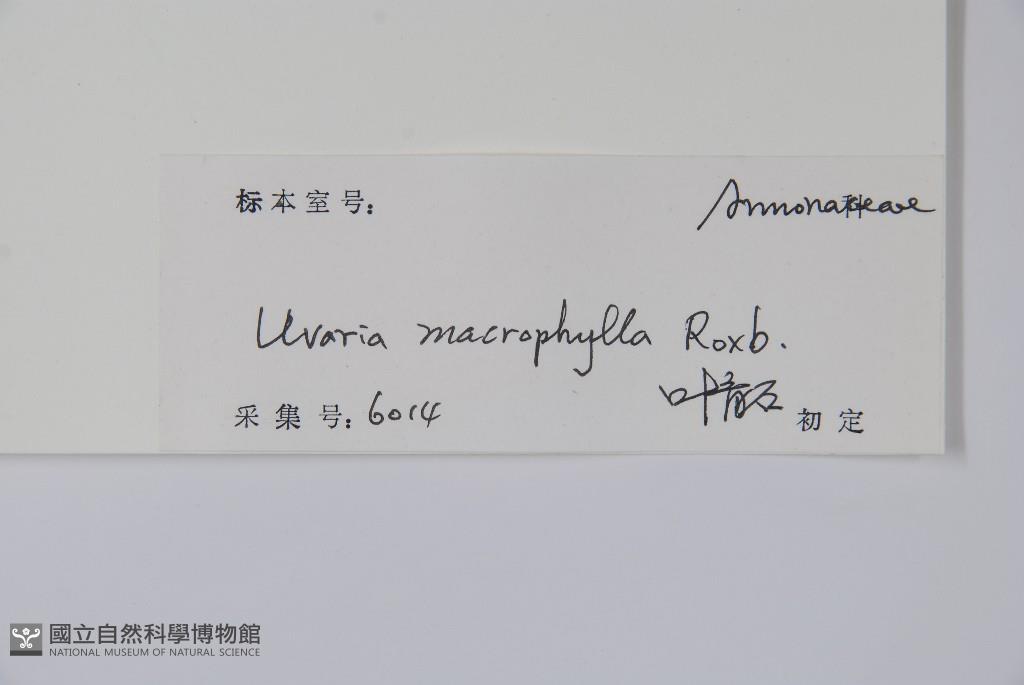 标本室号: Annonaceae 科
Uvaria macrophylla Roxb.
采集号: 6014 叶育石 初定
國立自然科學博物館
NATIONAL MUSEUM OF NATURAL SCIENCE